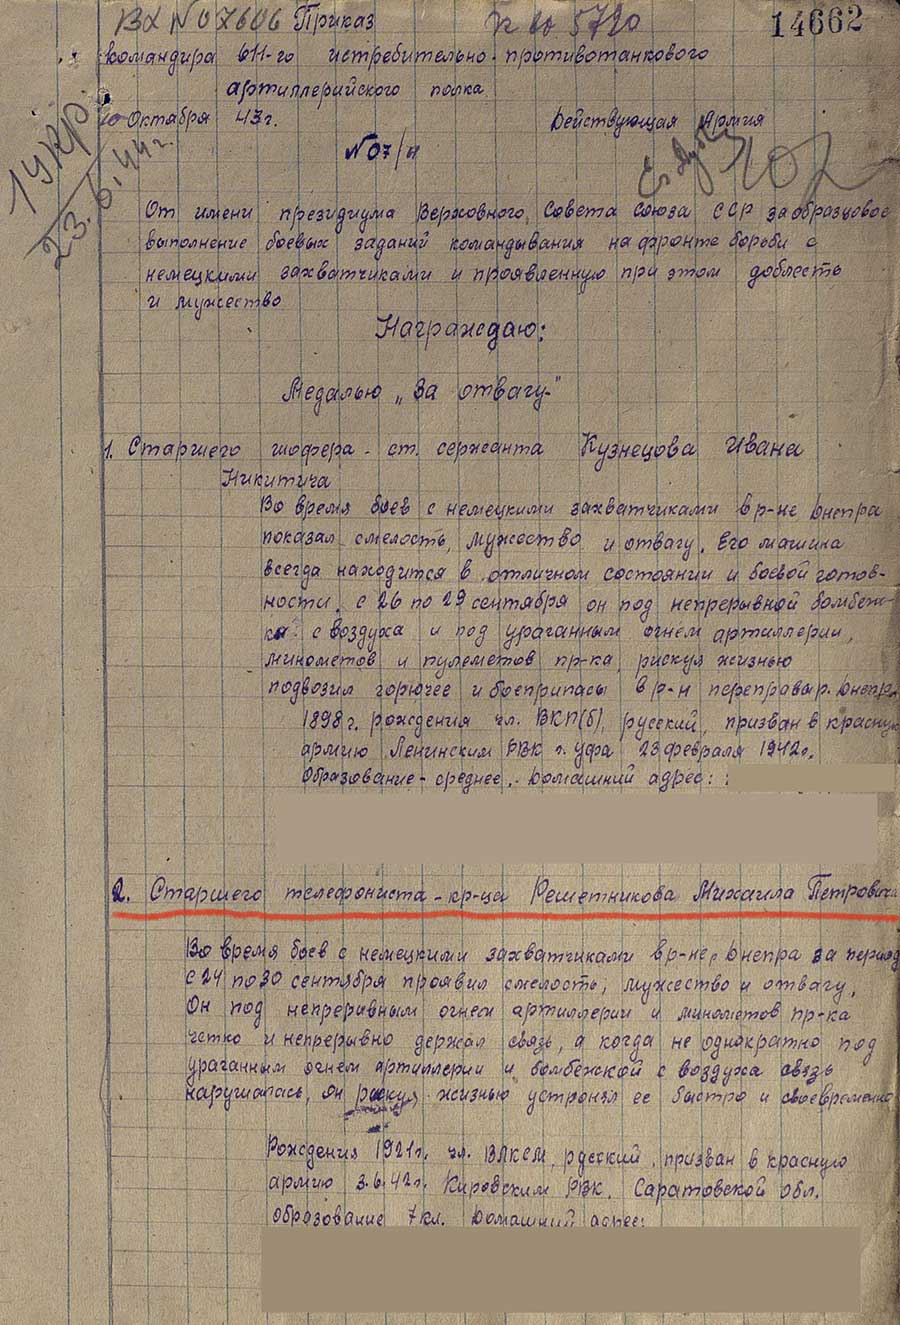 Вх №07606 Приказ
14662
командира 611-го истребительно-противотанкового
артиллерийского полка
10 Октября 43г. Действующая Армия
№07/н
1 укр.
23.6.44г.
От имени президиума Верховного Совета Союза ССР за образцовое
выполнение боевых заданий командывания на фронте борьби с
немецкими захватчиками и проявленную при этом доблесть
и мужество
Награждаю:
Медалью „За отвагу"
1. Старшего шофера - ст. сержанта Кузнецова Ивана
Никитича
Во время боев с немецкими захватчиками в р-не Днепра
показал смелость, мужество и отвагу. Его машина
всегда находится в отличном состоянии и боевой готов-
ности. с 26 по 29 сентября он под непрерывной бомбеж-
кой с воздуха и под ураганным огнем артиллерии,
минометов и пулеметов пр-ка, рискуя жизнью
подвозил горючее и боеприпасы в р-н переправы р. Днепр.
1898г. рождения чл. ВКП(б), русский, призван в красную
армию Ленинским РВК г. Уфа 23 февраля 1942г.
Образование - среднее. Домашний адрес:
2. Старшего телефониста - кр-ца Решетникова Михаила Петровича
Во время боев с немецкими захватчиками в р-не Днепра за период
с 24 по 30 сентября проявил смелость, мужество и отвагу.
Он под непрерывным огнем артиллерии и минометов пр-ка
четко и непрерывно держал связь, а когда не однократно под
ураганным огнем артиллерии и бомбежкой с воздуха связь
нарушалась, он рискуя жизнью устронял ее быстро и своевременно
Рождения 1921г. чл. ВЛКСМ, русский, призван в красную
армию 3.6.42г. Кировским РВК. Саратовской обл.
образование 7 кл. Домашний адрес: